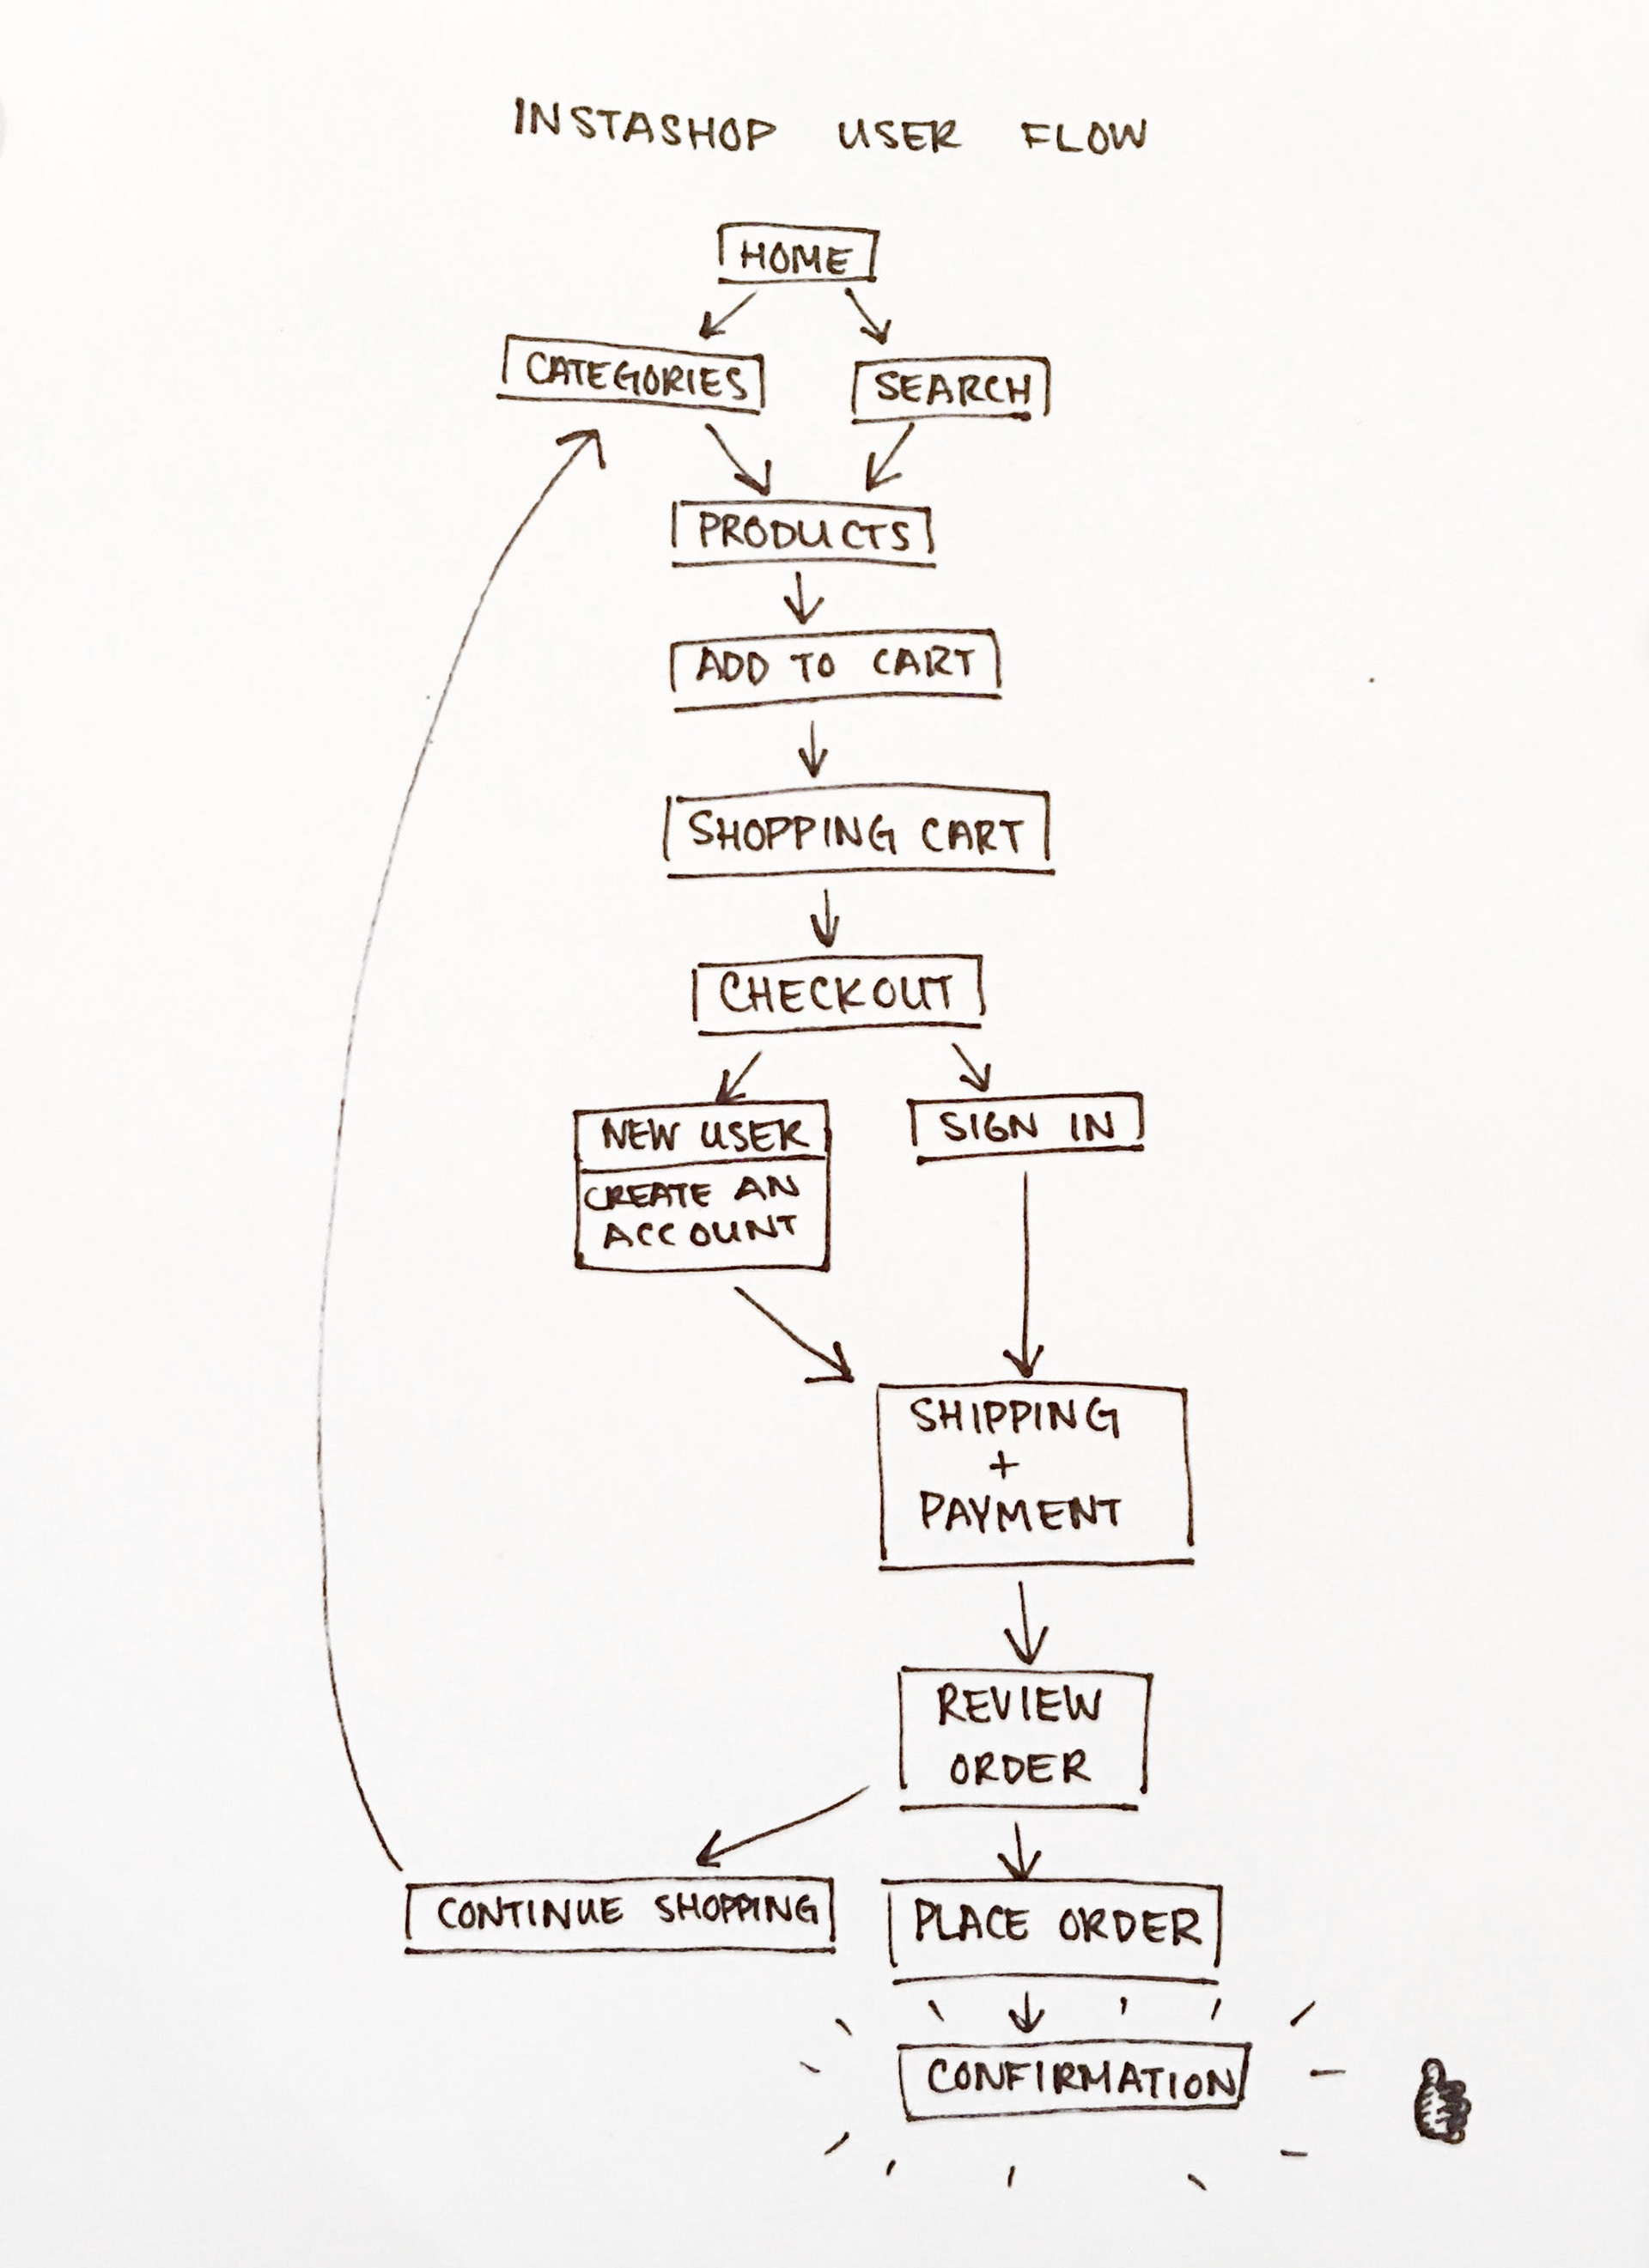 INSTASHOP USER FLOW
HOME
CATEGORIES
SEARCH
PRODUCTS
ADD TO CART
SHOPPING CART
CHECKOUT
NEW USER
CREATE AN
ACCOUNT
SIGN IN
SHIPPING
+
PAYMENT
REVIEW
ORDER
CONTINUE SHOPPING
PLACE ORDER
CONFIRMATION